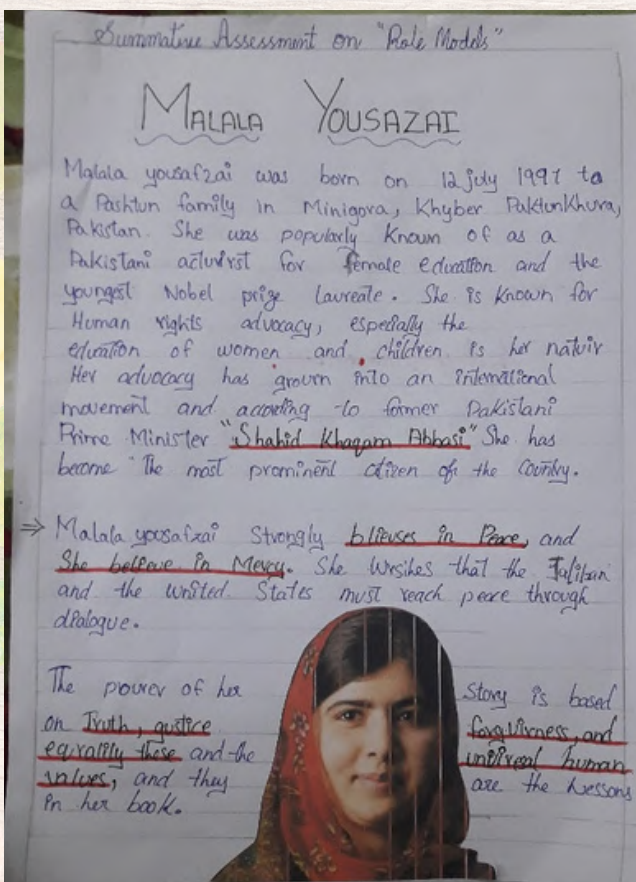 Summative Assessment on "Role Models"
MALALA YOUSAZAI
Malala yousafzai was born on 12 july 1997 to
a Pashtun family in Mingora, Khyber Paktunkhura,
Pakistan. She was popularly Known of as a
Pakistani activirst for female education and the
youngest Nobel prize laureate. She is Known for
Human rights advocacy, especially the
education of women and children is her nativir
Her advocacy has grown into an international
movement and according to former Pakistani
Prime Minister "Shahid Khaqam Abbasi" She has
become "The most prominent citizen of the Country.
⇒ Malala yousafzai Strongly blieuses in Peace, and
She believe in Mercy. She wrsihes that the Taliban
and the united States must reach peace through
dialogue.
The power of her Story is based
on Truth, gustice forgivrness, and
equality these and the univreal human
values, and they are the lessons
in her book.